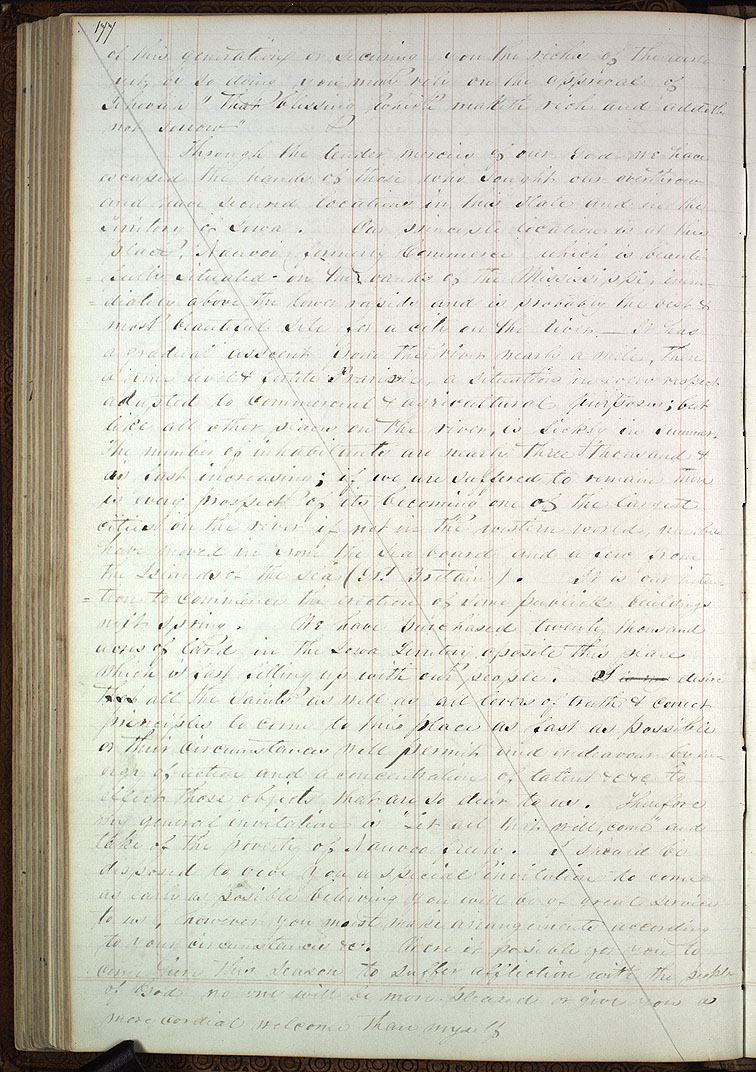 177
of this generation or securing you the riches of the world
yet, by so doing you may rely on the approval of
Jehovah "that blessing which maketh rich and addeth
not sorrow"
Through the tender mercies of our God we have
escaped the hands of those who sought our overthrow
and have secured locations in this state and in the
Territory of Iowa. Our principle location is at this
place, Nauvoo, formerly Commerce which is beauti
=fully situated on the banks of the Mississippi, imm
=diately above the lower rapids and is probably the best &
most beautiful site for a city on the river — it has
a gradual assent from the river nearly a mile, then
a fine level & fertile Prairie, a situation in every respect
adapted to commercial & agricultural purposes; but
like all other places on the river, is sickly in summer.
The number of inhabitants are nearly three thousand &
is fast increasing; if we are suffered to remain there
is every prospect of its becoming one of the largest
cities on the river if not in the western world, numbers
have moved in from the sea board and a few from
the Islands of the sea (Grt Britain). It is our inten-
=tion to commence the erection of some publick buildings
next spring. We have purchased twenty thousand
acres of land in the Iowa Territory oposite this place
which is fast filling up with our people. I desire
all the saints as well as all lovers of truth & correct
principles to come to this place as fast as possible
or their circumstances will permit and endeavour by en-
ergy of action and a concentration of talent &c &c to
effect those objects that are so dear to us. Therefore
my general invitation is "Let all that will, come" and
take of the poverty of Nauvoo freely. I should be
disposed to give you a special invitation to come
as early as posible believing you will be of great service
to us, however you must make arrangements according
to your circumstances &c. Were it posible for you to
come here this season to suffer affliction with the people
of God no one will be more pleased or give you a
more cordial welcome than myself